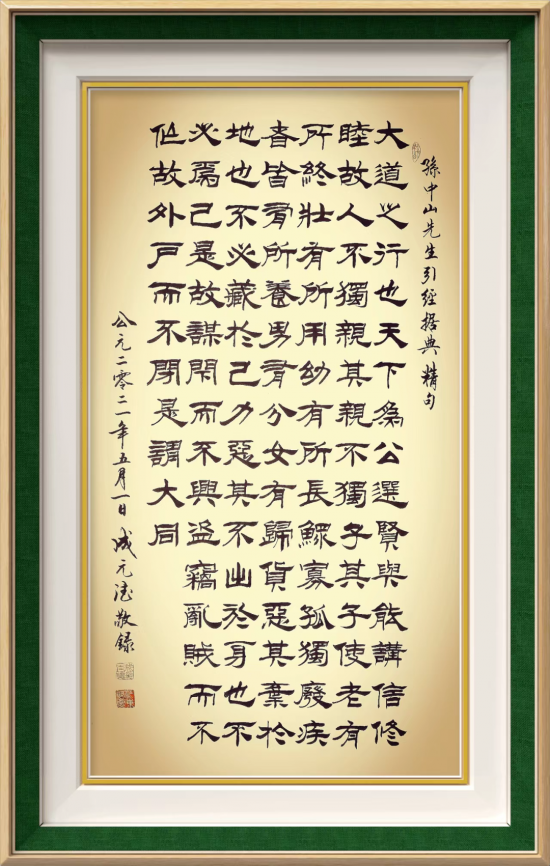 孫中山先生引經据典精句
大道之行也天下為公選賢與能講信修
睦故人不獨親其親不獨子其子使老有
所終壯有所用幼有所長鰥寡孤獨廢疾
者皆有所養男有分女有歸貨惡其棄於
地也不必藏於己力惡其不出於身也不
必為己是故謀閉而不興盜竊亂賊而不
作故外戶而不閉是謂大同
公元二零二一年五月一日成元敬錄